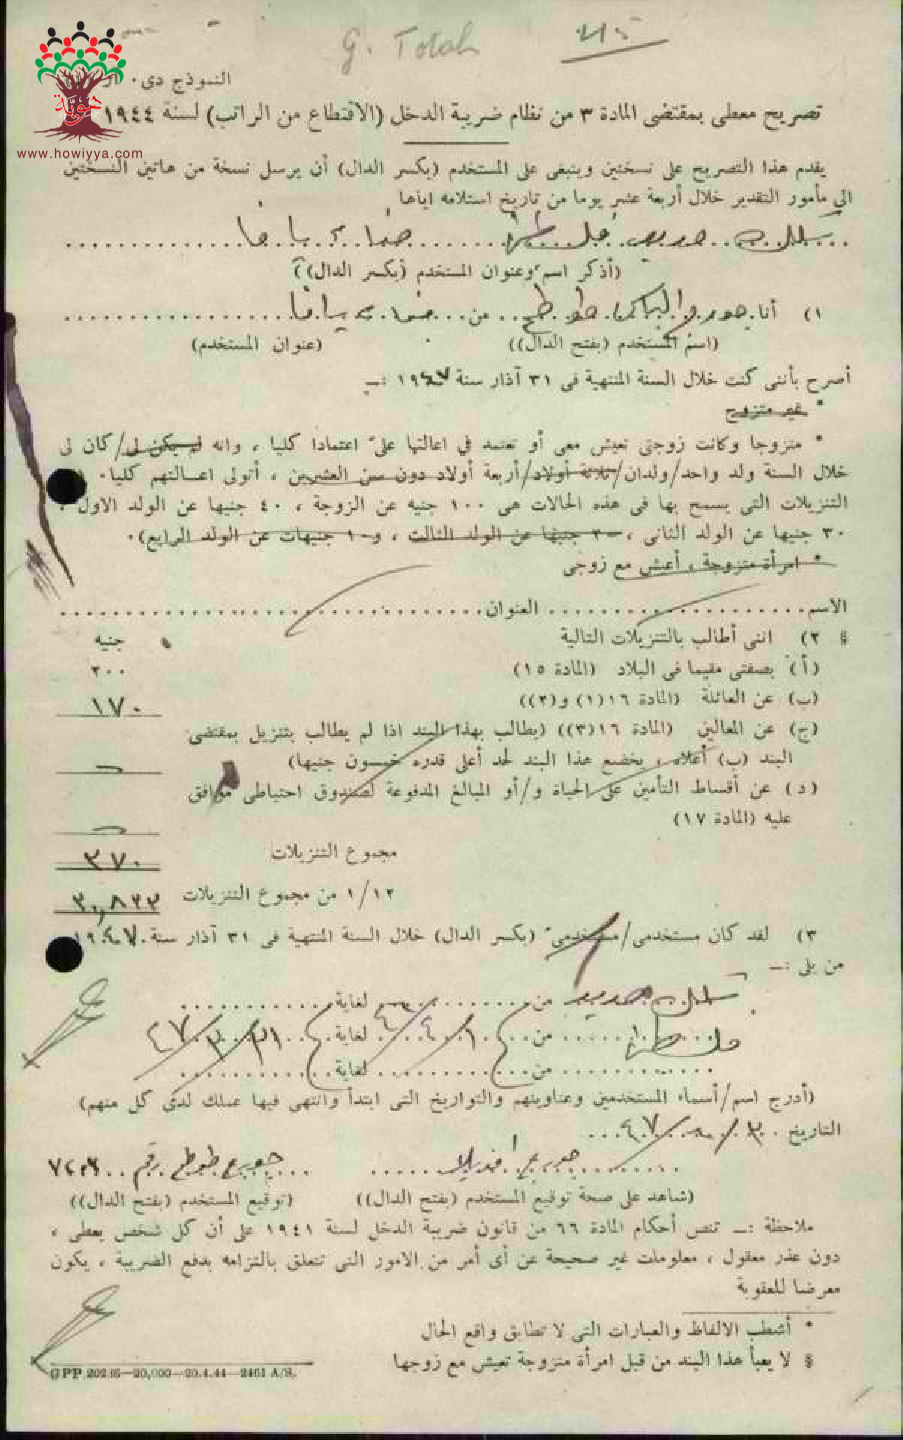 G. Totah
هوية
www.howiyya.com
النموذج دي٠
تصريح معطى بمقتضى المادة ٣ من نظام ضريبة الدخل (الاقتطاع من الراتب) لسنة ١٩٤٤
يقدم هذا التصريح على نسختين وينبغي على المستخدم (بكسر الدال) أن يرسل نسخة من هاتين النسختين
الى مأمور التقدير خلال أربعة عشر يوما من تاريخ استلامه اياها
سكك حديد فلسطين حيفا
(أذكر اسم وعنوان المستخدم (بكسر الدال))
١) أنا جورج طوطح من يافا
(اسم المستخدم (بفتح الدال)) (عنوان المستخدم)
أصرح بأنني كنت خلال السنة المنتهية في ٣١ آذار سنة ١٩٤٧ :ـ
* غير متزوج
* متزوجا وكانت زوجتي تعيش معي أو تعتمد في اعالتها عليّ اعتمادا كليا ، وانه لم يكن لي/كان لي
خلال السنة ولد واحد/ولدان/ثلاثة أولاد/أربعة أولاد دون سن العشرين ، أتولى اعالتهم كليا٠ (
التنزيلات التي يسمح بها في هذه الحالات هي ١٠٠ جنيه عن الزوجة ، ٤٠ جنيها عن الولد الاول ،
٣٠ جنيها عن الولد الثاني ، ٢٠ جنيها عن الولد الثالث ، و١٠ جنيهات عن الولد الرابع)٠
* امرأة متزوجة ، أعيش مع زوجي
الاسم العنوان
§ ٢) انني أطالب بالتنزيلات التالية جنيه
(أ) بصفتي مقيما في البلاد (المادة ١٥) ٢٠٠
(ب) عن العائلة (المادة ١٦(١) و(٢)) ١٧٠
(ج) عن المعالين (المادة ١٦(٣)) (يطالب بهذا البند اذا لم يطالب بتنزيل بمقتضى
البند (ب) أعلاه ، يخضع هذا البند لحد أعلى قدره خمسون جنيها)
(د) عن أقساط التأمين على الحياة و/أو المبالغ المدفوعة لصندوق احتياطي موافق
عليه (المادة ١٧)
مجموع التنزيلات ٣٧٠
١/١٢ من مجموع التنزيلات ٣٠,٨٣٣
٣) لقد كان مستخدمي/مستخدميّ (بكسر الدال) خلال السنة المنتهية في ٣١ آذار سنة ١٩٤٧
من يلي :ـ
سكك حديد من لغاية
فلسطين من ١/٤/٤٦ لغاية ٣١/٣/٤٧
من لغاية
(أدرج اسم/أسماء المستخدمين وعناوينهم والتواريخ التي ابتدأ وانتهى فيها عملك لدى كل منهم)
التاريخ
جورج طوطح رقم
(شاهد على صحة توقيع المستخدم (بفتح الدال)) (توقيع المستخدم (بفتح الدال))
ملاحظة :ـ تنص أحكام المادة ٦٦ من قانون ضريبة الدخل لسنة ١٩٤١ على أن كل شخص يعطي ،
دون عذر معقول ، معلومات غير صحيحة عن أي أمر من الامور التي تتعلق بالتزامه بدفع الضريبة ، يكون
معرضا للعقوبة
* أشطب الالفاظ والعبارات التي لا تطابق واقع الحال
§ لا يعبأ هذا البند من قبل امرأة متزوجة تعيش مع زوجها
GPP 20216—20,000—20.4.44—2461 A/S.